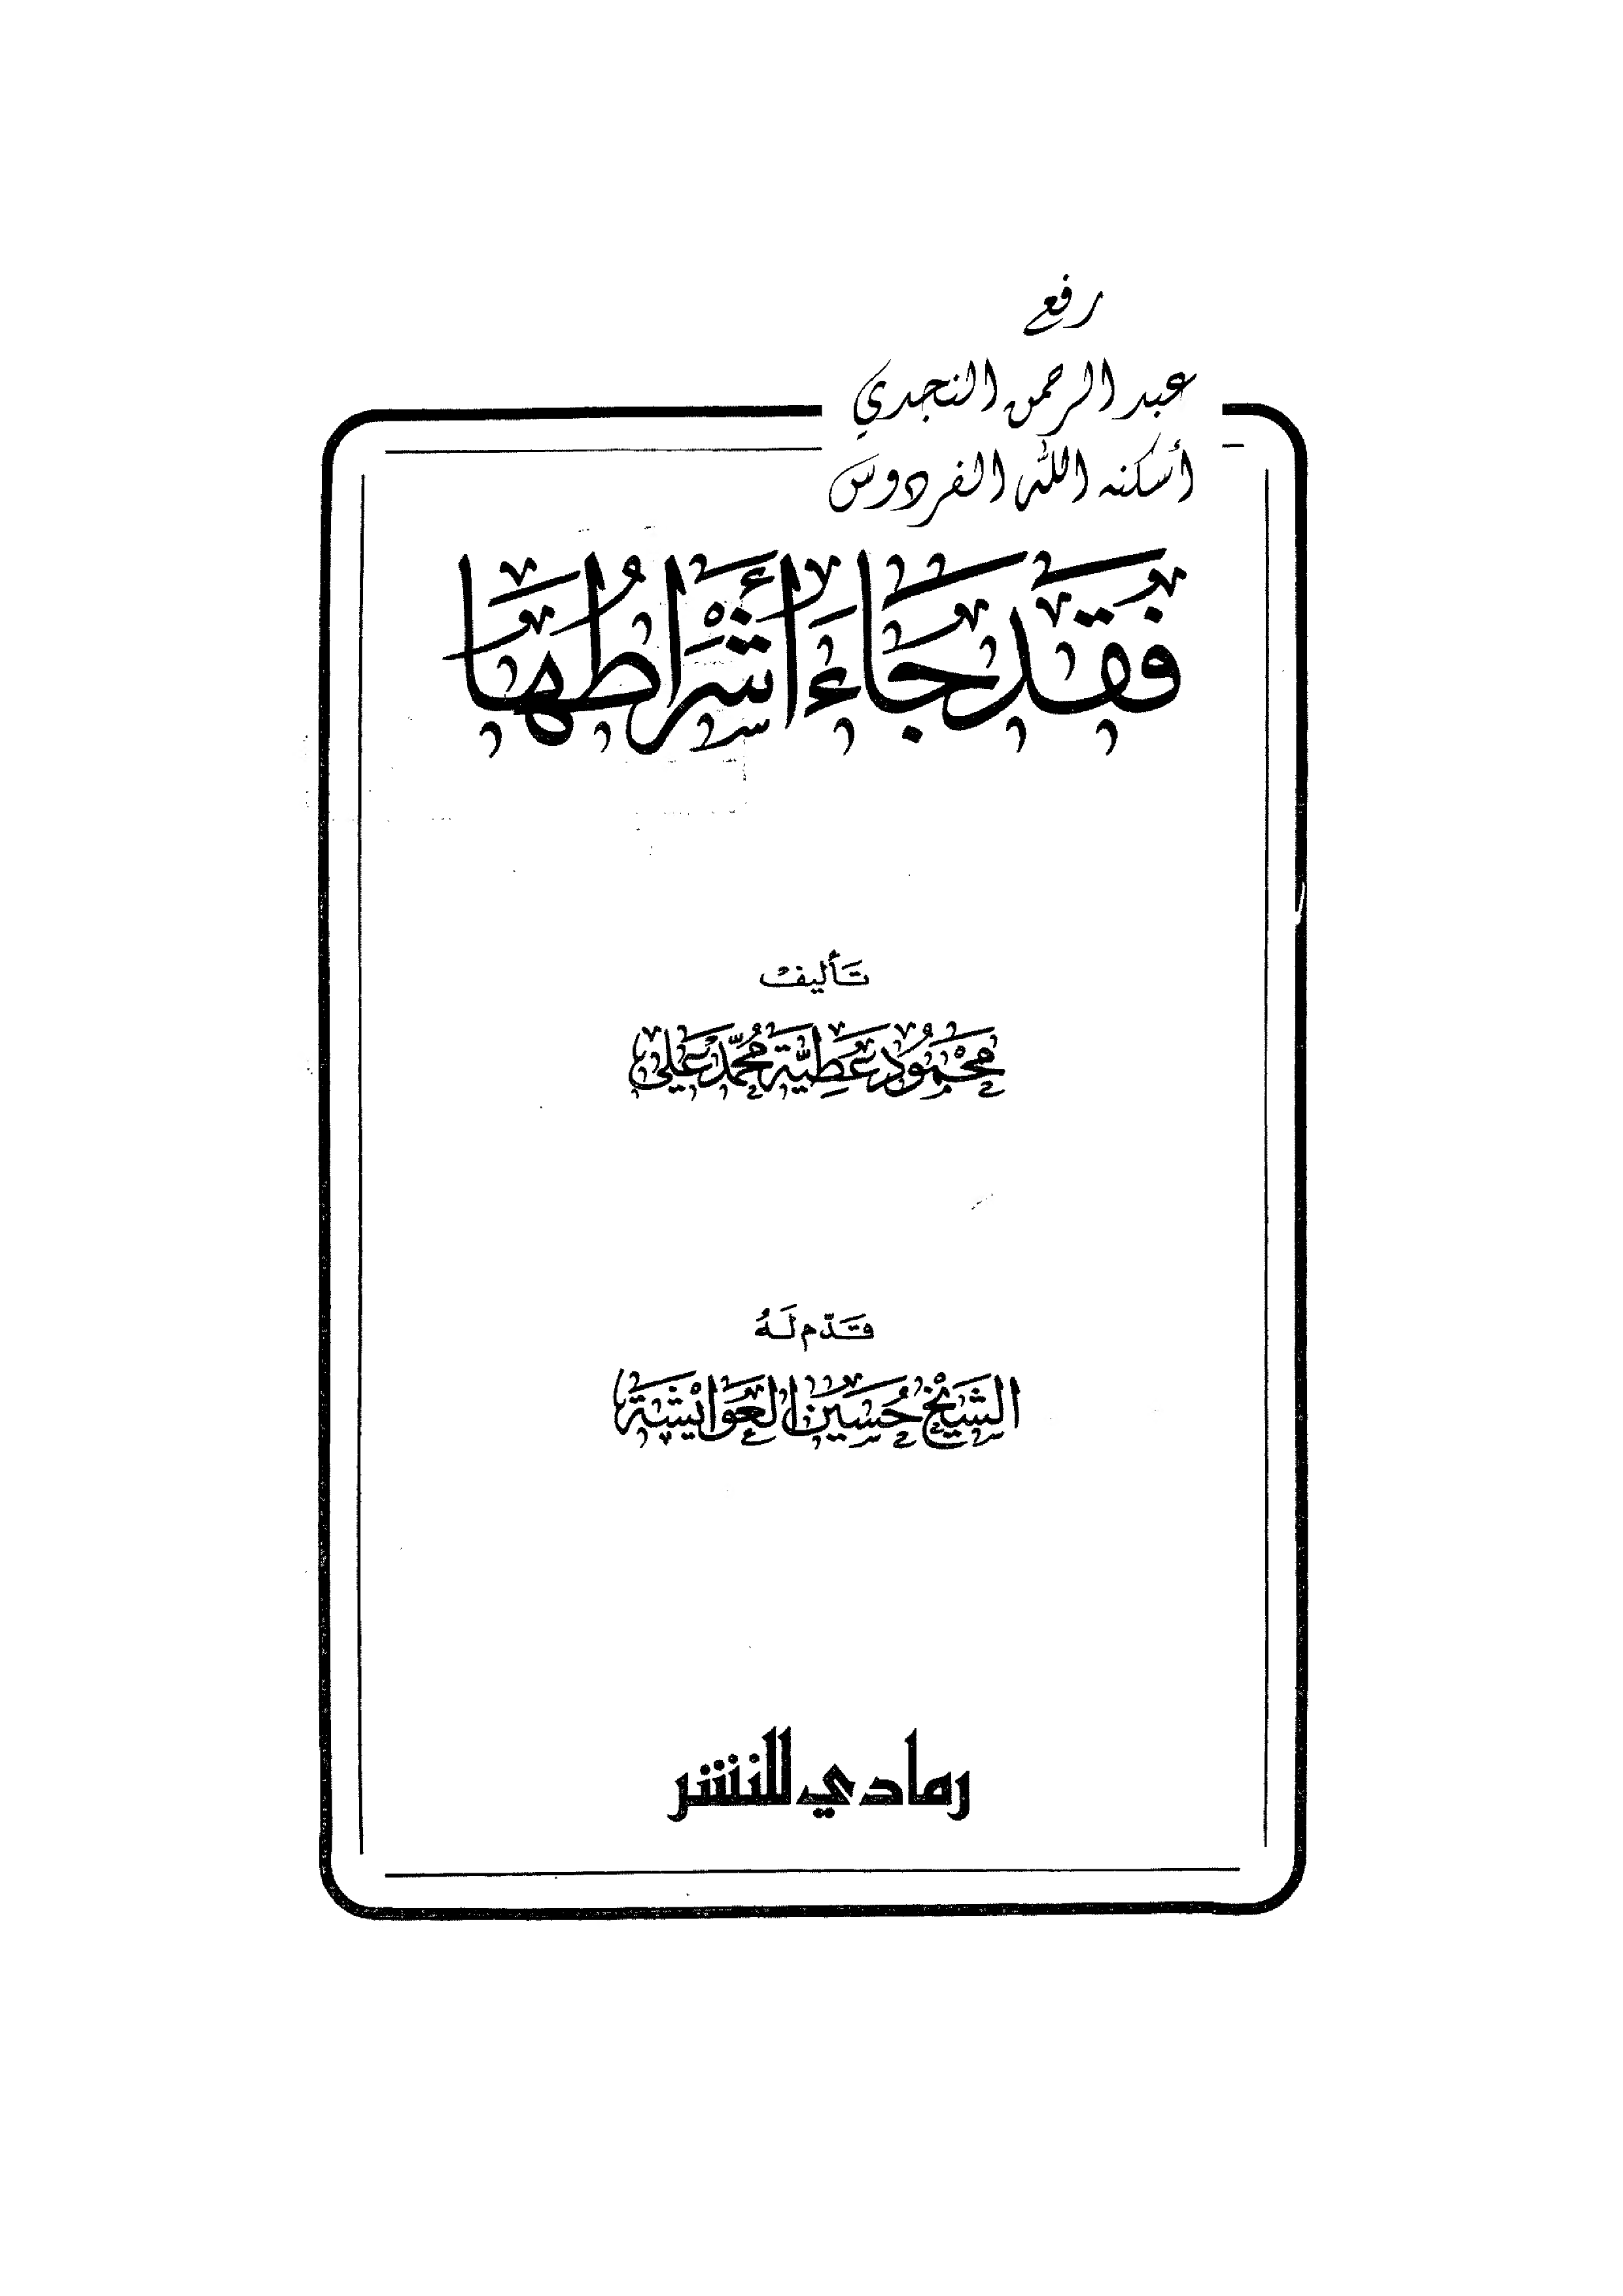 رفع
عبد الرحمن النجدي
أسكنه الله الفردوس
فَقَدْ جَاءَ أَشْرَاطُهَا
تَأليفْ
مَحْمُود عَطِيَّة مُحَمَّد عَلي
قَدَّم لَهُ
الشَّيْخ حُسَين العَوَايْشَة
رمادي للنشر